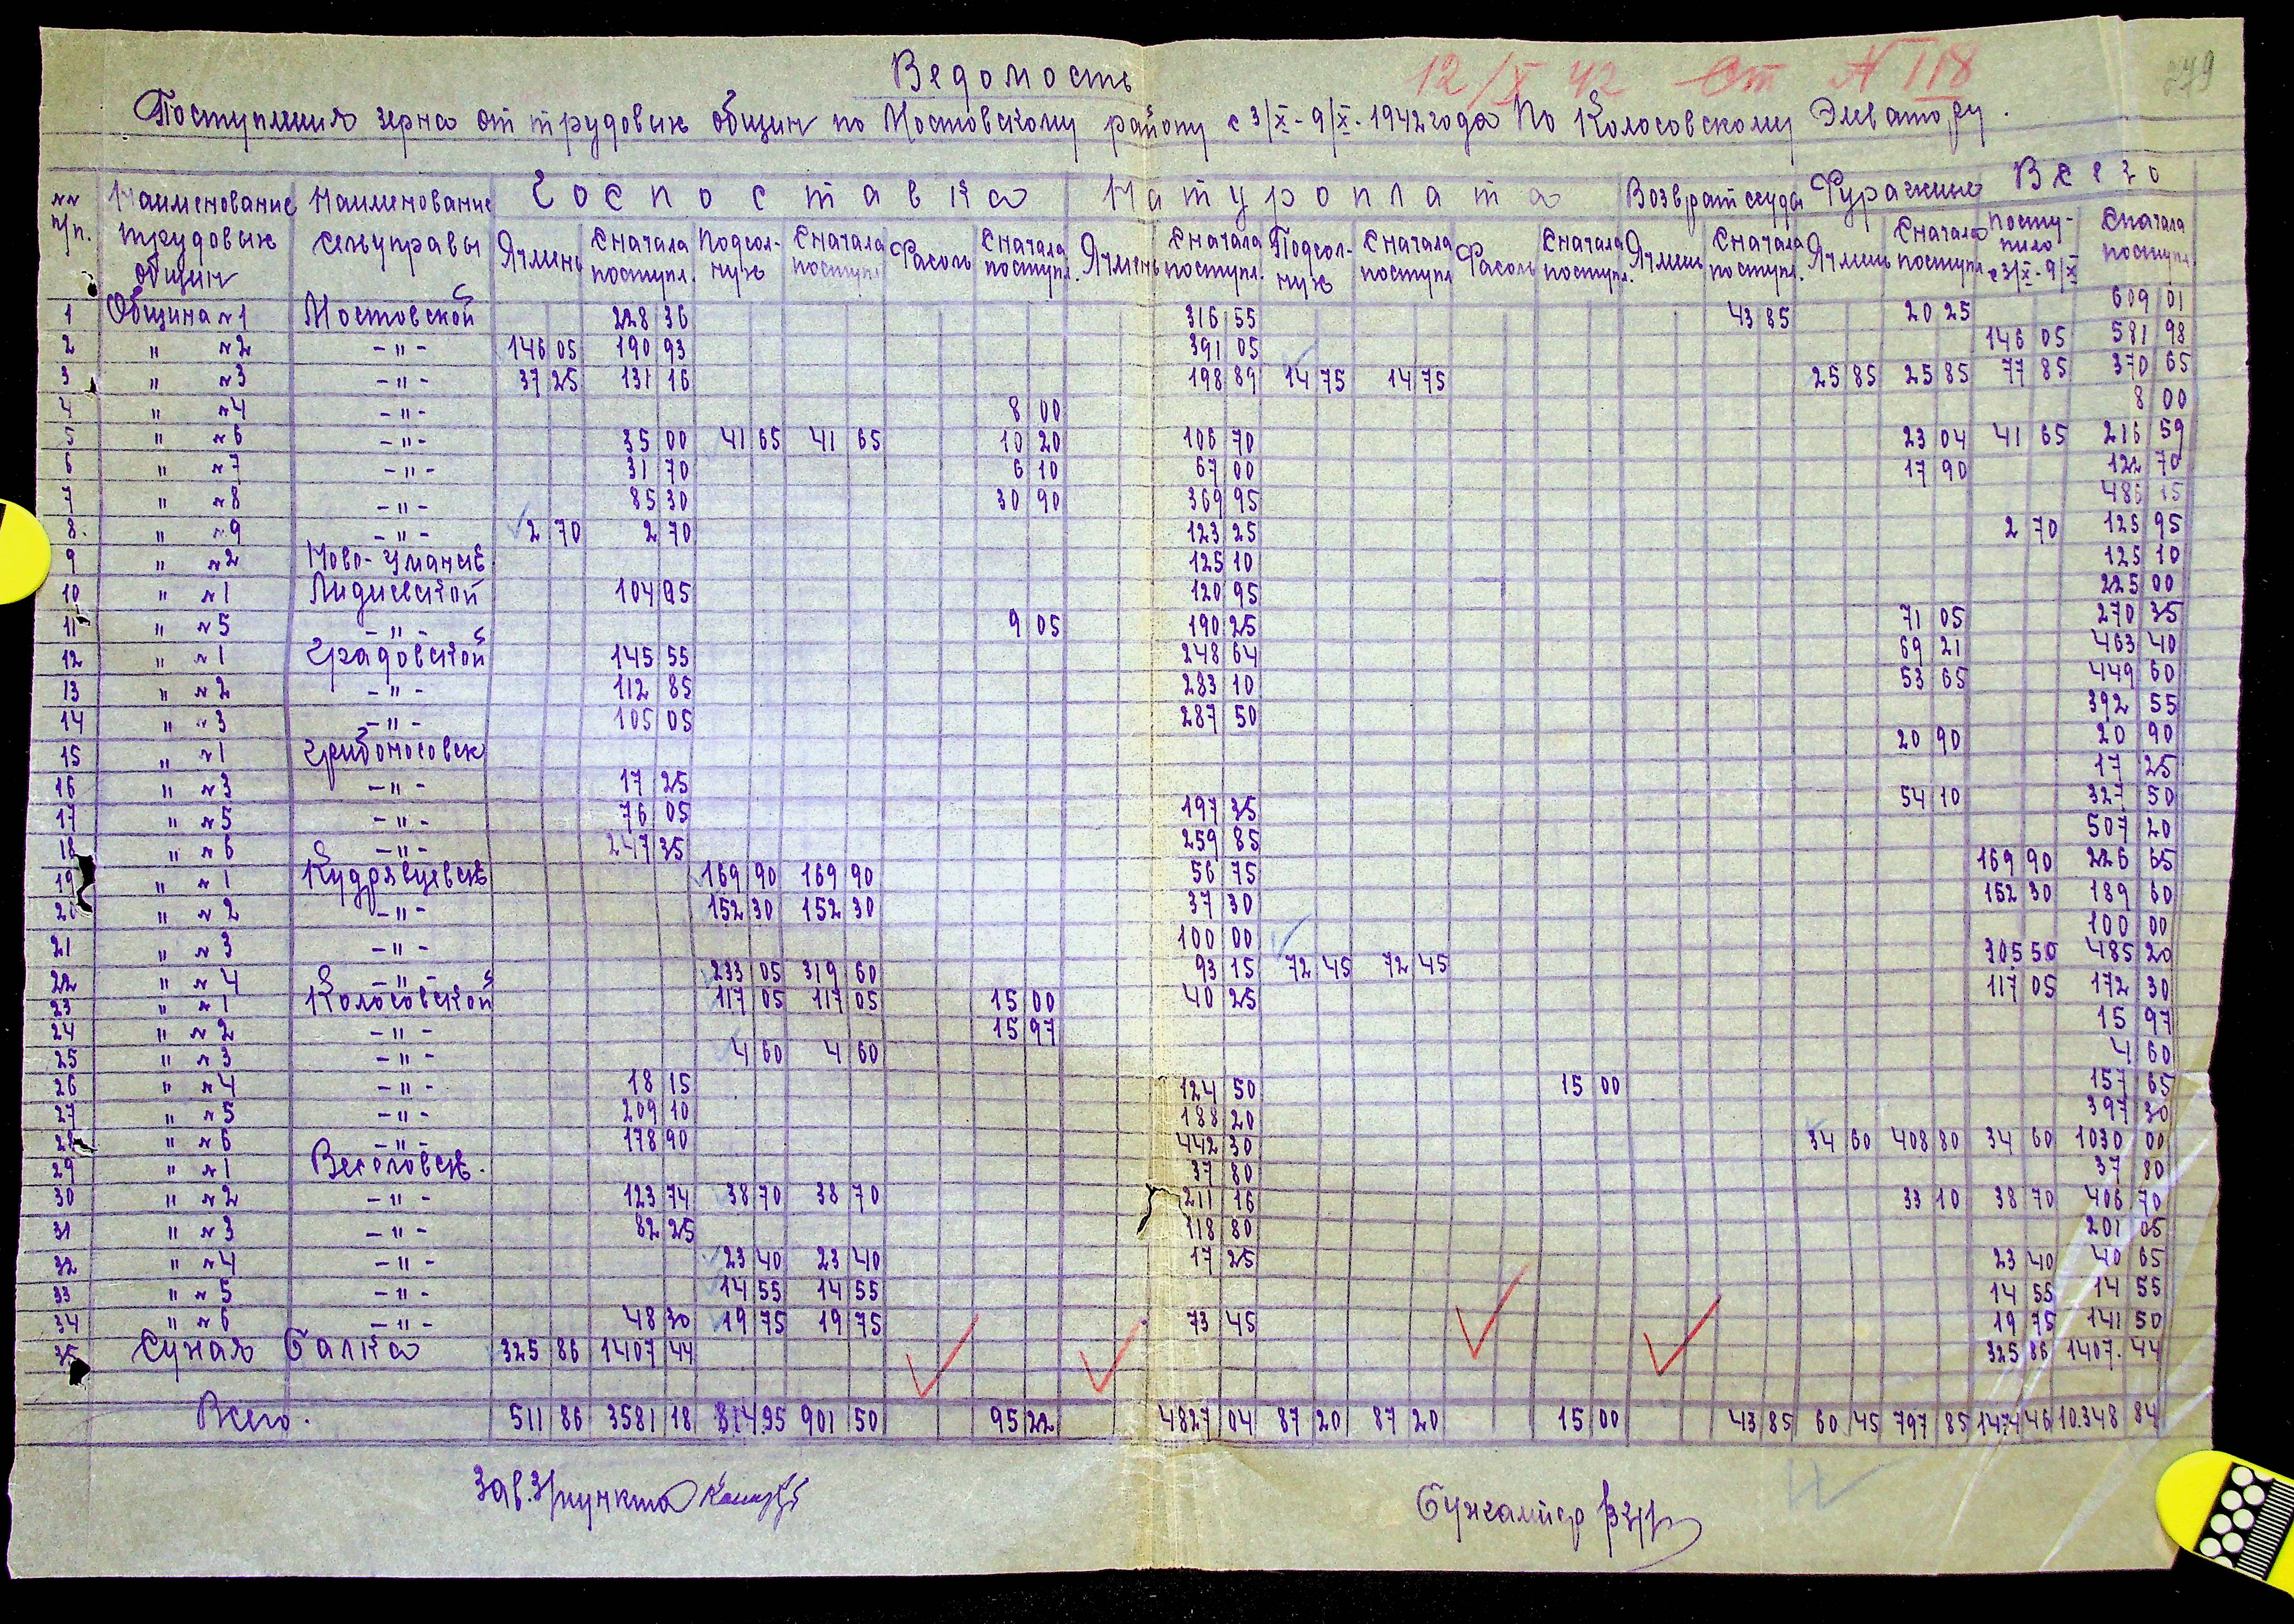 Ведомость
12/X 42 Вт N 118
279
Поступления зерна от трудовых общин по Мостовскому району с 3/X - 9/X - 1942 года по Колосовскому Элеватору.
№№ п/п. Наименование трудовых общин Наименование сельуправы Госпоставка Натуроплата Возврат ссуды Фуражные Всего
Ячмень Сначала поступл. Подсолнух Сначала поступл Фасоль Сначала поступл. Ячмень Сначала поступл. Подсолнух Сначала поступл Фасоль Сначала поступл. Ячмень Сначала поступл. Ячмень Сначала поступл Поступило с 3/X - 9/X Сначала поступл.
1 Община №1 Мостовской 228 36 316 55 43 85 20 25 609 01
2 " №2 -"- 146 05 190 93 391 05 146 05 581 98
3 " №3 -"- 37 25 131 16 198 89 14 75 14 75 25 85 25 85 77 85 370 65
4 " №4 -"- 8 00 8 00
5 " №6 -"- 35 00 41 65 41 65 10 20 106 70 23 04 41 65 216 59
6 " №7 -"- 31 70 6 10 67 00 17 90 122 70
7 " №8 -"- 85 30 30 90 369 95 486 15
8. " №9 -"- 2 70 2 70 123 25 2 70 125 95
9 " №2 Ново-Уманск. 125 10 125 10
10 " №1 Лидиевской 104 05 120 95 225 00
11 " №5 -"- 9 05 190 25 71 05 270 35
12 " №1 Градовской 145 55 248 64 69 21 463 40
13 " №2 -"- 112 85 283 10 53 65 449 60
14 " №3 -"- 105 05 287 50 392 55
15 " №1 Грибоносовск 20 90 20 90
16 " №3 -"- 17 25 17 25
17 " №5 -"- 76 05 197 35 54 10 327 50
18 " №6 -"- 247 35 259 85 507 20
19 " №1 Кудрявцевск 169 90 169 90 56 75 169 90 226 65
20 " №2 -"- 152 30 152 30 37 30 152 30 189 60
21 " №3 -"- 100 00 100 00
22 " №4 -"- 233 05 319 60 93 15 72 45 72 45 305 50 485 20
23 " №1 Колосовской 117 05 117 05 15 00 40 25 117 05 172 30
24 " №2 -"- 15 97 15 97
25 " №3 -"- 4 60 4 60 4 60
26 " №4 -"- 18 15 124 50 15 00 157 65
27 " №5 -"- 209 10 188 20 397 30
28 " №6 -"- 178 90 442 30 34 60 408 80 34 60 1030 00
29 " №1 Веселовск. 37 80 37 80
30 " №2 -"- 123 74 38 70 38 70 211 16 33 10 38 70 406 70
31 " №3 -"- 82 25 118 80 201 05
32 " №4 -"- 23 40 23 40 17 25 23 40 40 65
33 " №5 -"- 14 55 14 55 14 55 14 55
34 " №6 -"- 48 30 19 75 19 75 73 45 19 75 141 50
35 Сухая Балка 325 86 1407 44 325 86 1407. 44
Всего. 511 86 3581 18 814 95 901 50 95 22 4827 04 87 20 87 20 15 00 43 85 60 45 797 85 1474 46 10.348 84
Зав. З/пункта
Бухгалтер